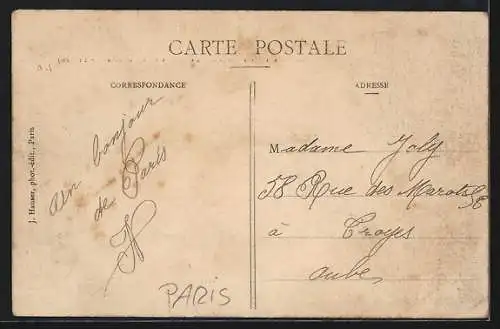 CARTE POSTALE
CORRESPONDANCE
ADRESSE
J. Hauser, phot.-édit., Paris
un bonjour
de Paris
PARIS
Madame Joly
58 Rue des Marots
à Troyes
Aube